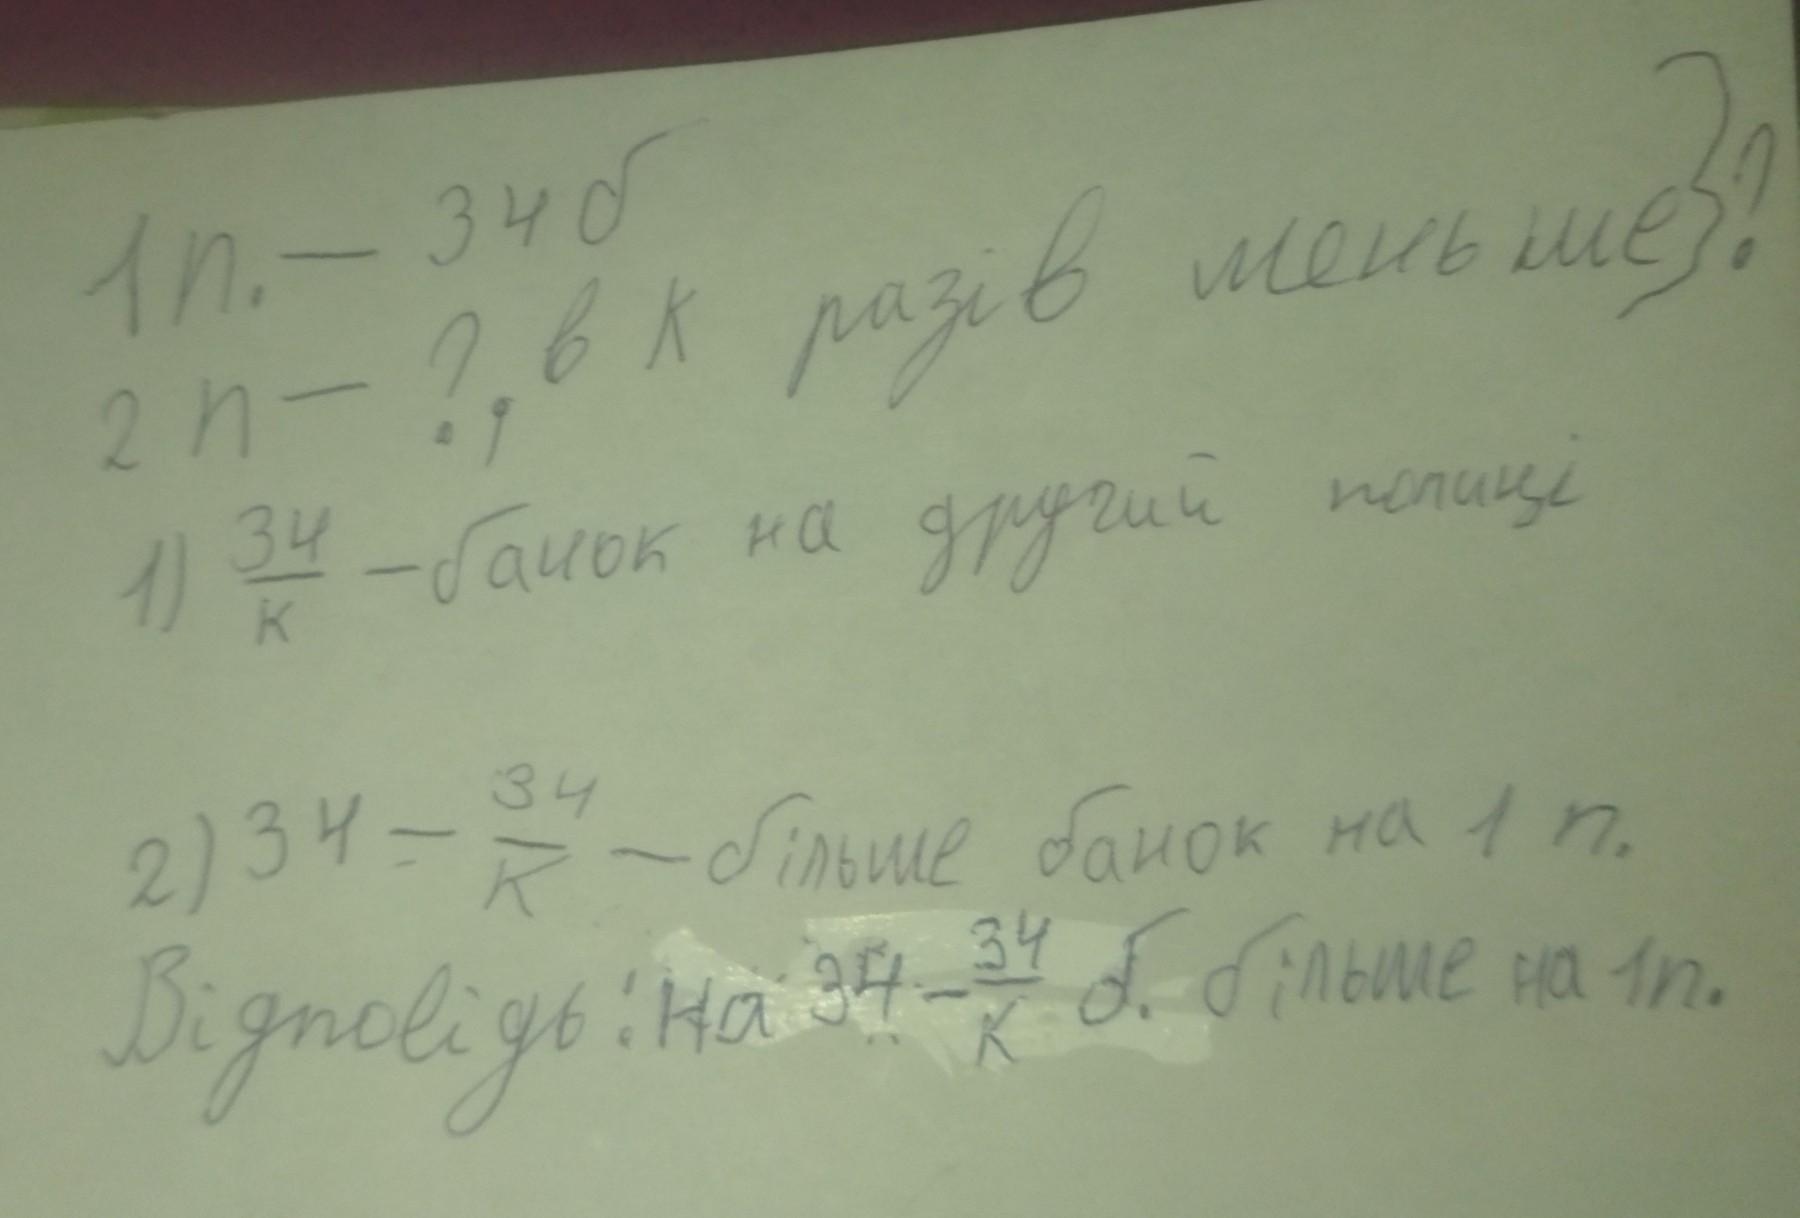 1п. — 34б
2 п — ?, в к разів меньше}?
1) 34/к — банок на другий полиці
2) 34 — 34/к — більше банок на 1 п.
Відповідь: На 34 - 34/к б. більше на 1п.